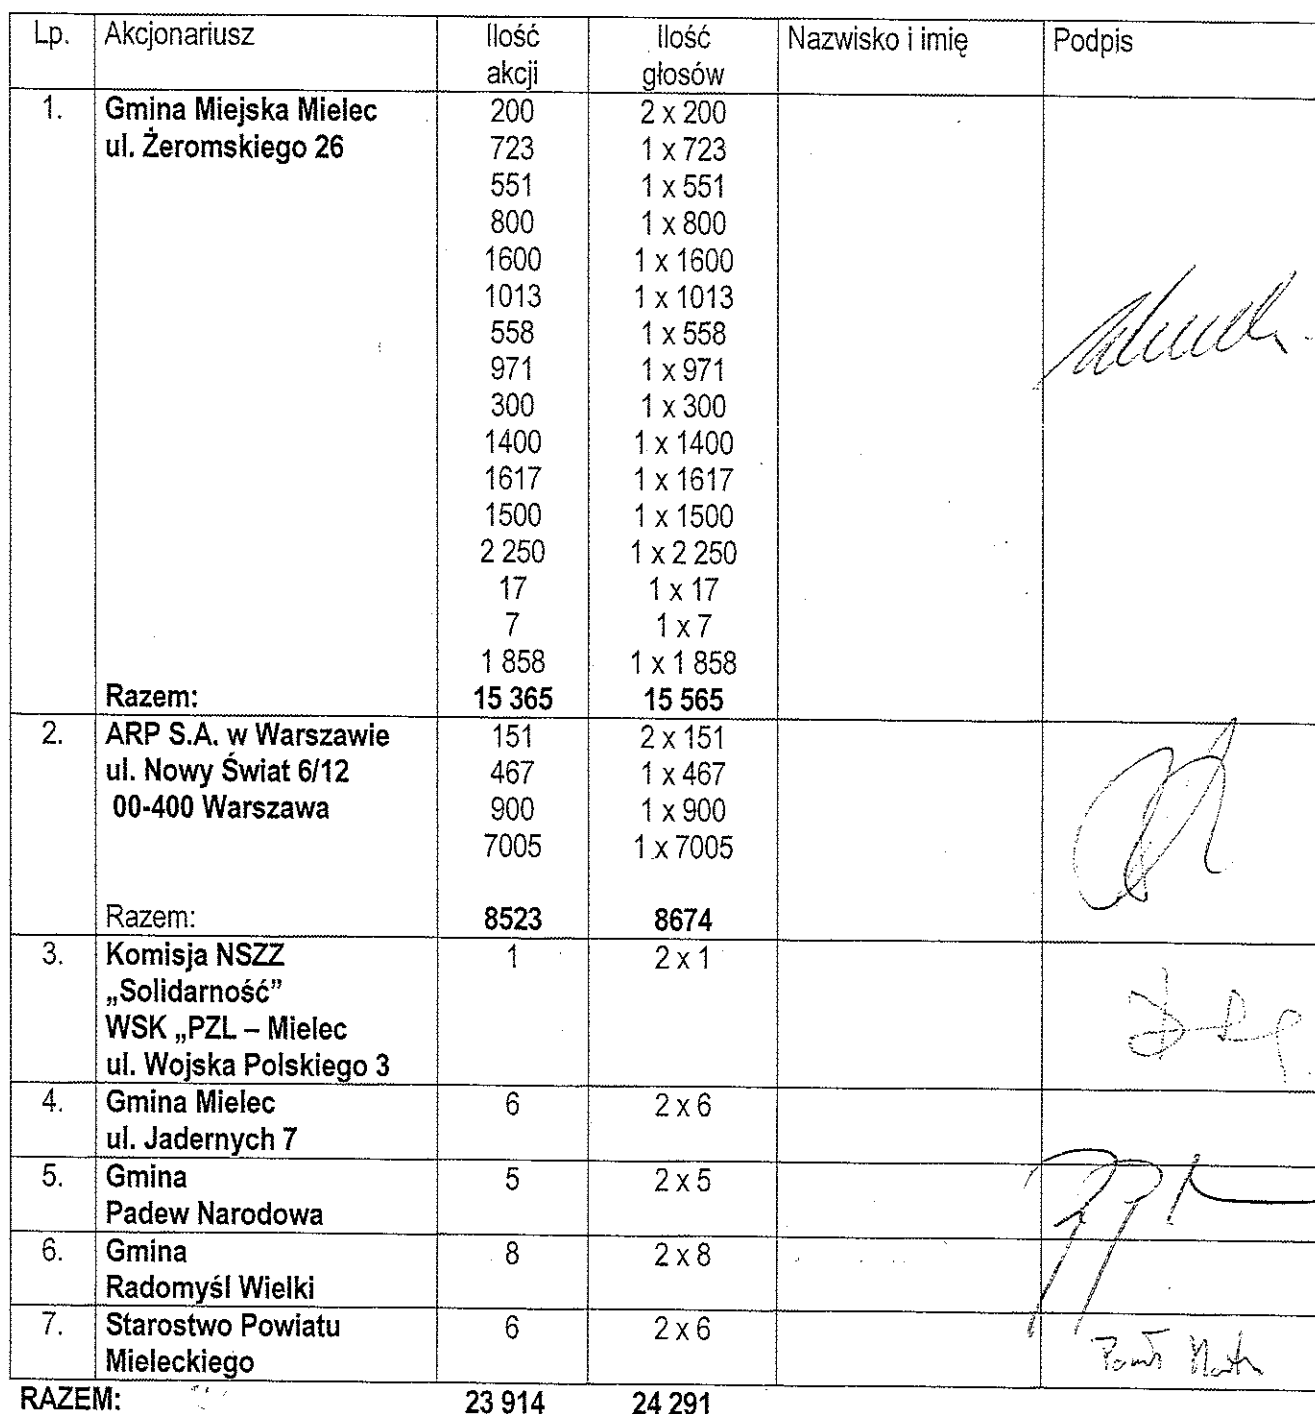 Lp. Akcjonariusz Ilość akcji Ilość głosów Nazwisko i imię Podpis
1. Gmina Miejska Mielec 200 2 x 200
ul. Żeromskiego 26 723 1 x 723
551 1 x 551
800 1 x 800
1600 1 x 1600
1013 1 x 1013
558 1 x 558
971 1 x 971
300 1 x 300
1400 1 x 1400
1617 1 x 1617
1500 1 x 1500
2 250 1 x 2 250
17 1 x 17
7 1 x 7
1 858 1 x 1 858
Razem: 15 365 15 565
2. ARP S.A. w Warszawie 151 2 x 151
ul. Nowy Świat 6/12 467 1 x 467
00-400 Warszawa 900 1 x 900
7005 1 x 7005
Razem: 8523 8674
3. Komisja NSZZ 1 2 x 1
„Solidarność”
WSK „PZL – Mielec
ul. Wojska Polskiego 3
4. Gmina Mielec 6 2 x 6
ul. Jadernych 7
5. Gmina 5 2 x 5
Padew Narodowa
6. Gmina 8 2 x 8
Radomyśl Wielki
7. Starostwo Powiatu 6 2 x 6
Mieleckiego
RAZEM: 23 914 24 291